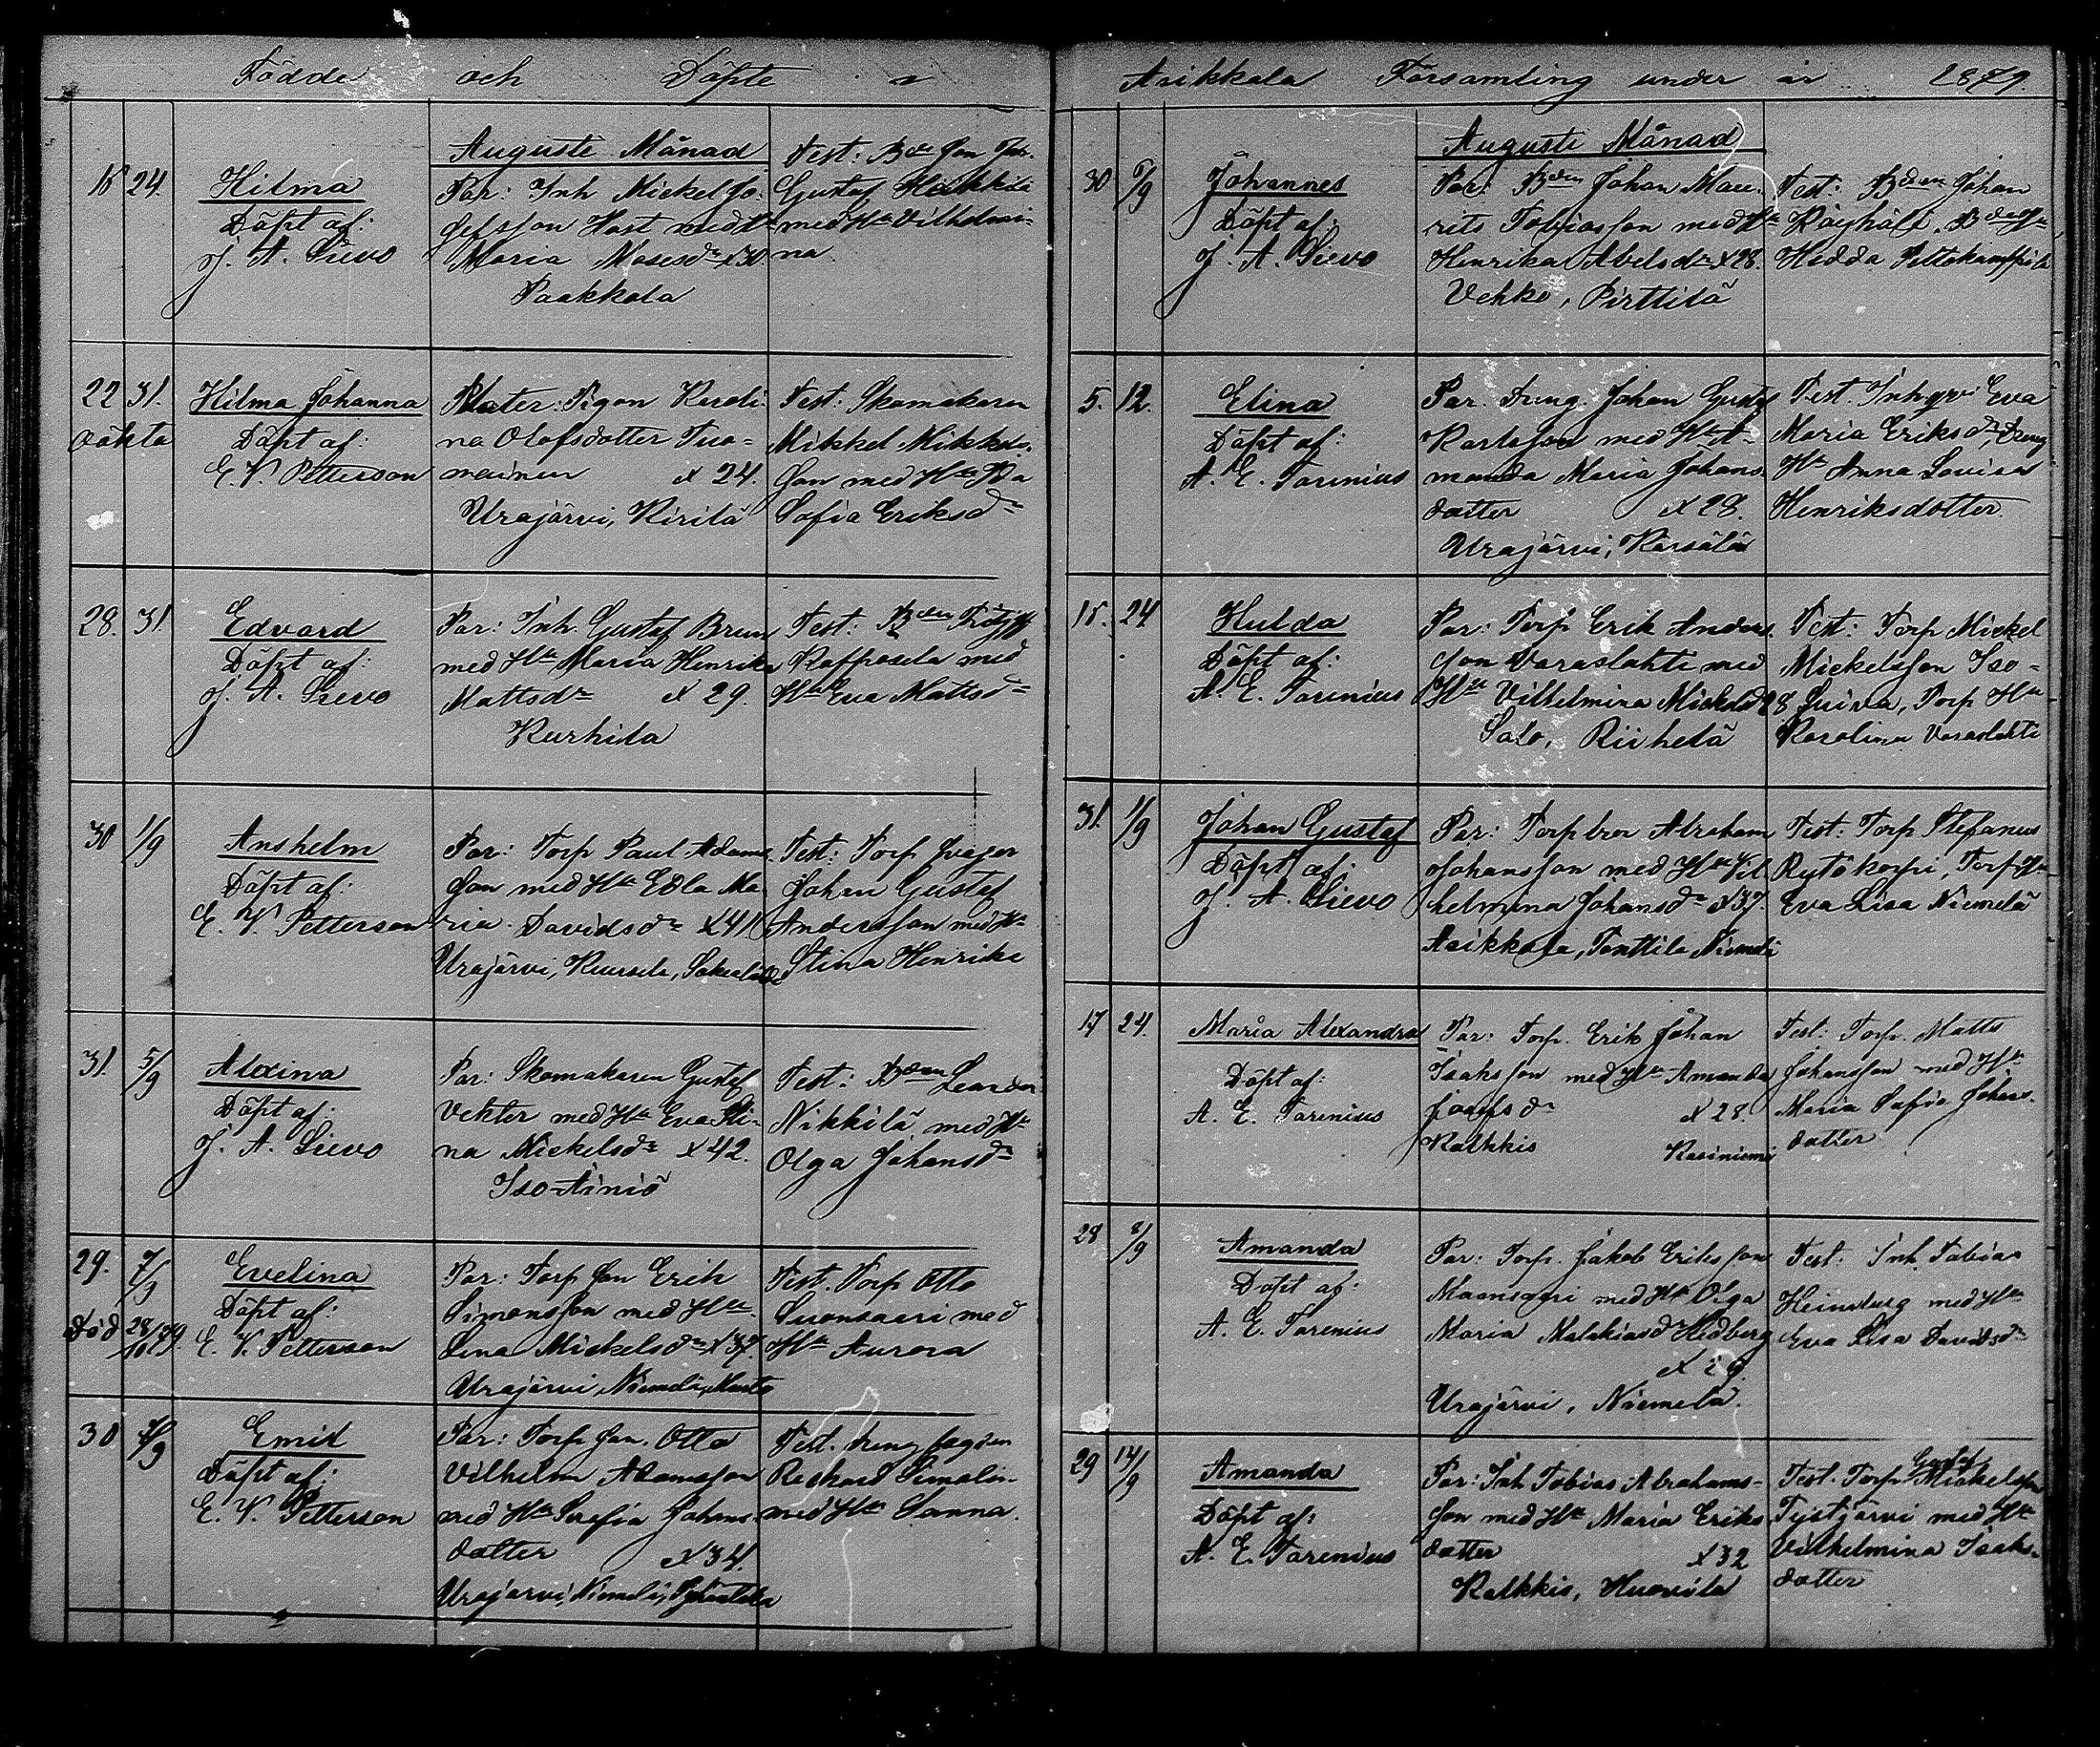 Födde och Döpte i
Augusti Månad
18 24. Hilma
Döpt af:
J. A. Lievo
Par: Inh Mickel Jo-
sefsson Host med Hu
Maria Mosesdr x 30
Paakkola
Test: Bde son Joh.
Gustaf Hiekkilä
med Hu Vilhelmi-
na.
22 31. Hilma Johanna
oäkta Döpt af:
E. V. Petterson
Mater: Pigan Karoli-
na Olofsdotter Tuo-
mainen x 24.
Urajärvi, Kirilä
Test: Skomakaren
Mikkel Mikkels-
son med Hu
Sofia Eriksdr
28. 31. Edvard
Döpt af:
J. A. Lievo
Par: Inh. Gustaf Brun
med Hu Maria Henrika
Mattsdr x 29.
Kurhila
Test: Bden
med
Hu Eva Mattsdr
30 1/9 Anshelm
Döpt af:
E. V. Petterson
Par: Torp Paul Adams-
son med Hu Edla Ma-
ria Davidsdr x 41
Urajärvi, Kuusela,
Test: Torp svåger
Johan Gustaf
Andersson med Hu
Stina Henrika
31. 5/9 Alexina
Döpt af:
J. A. Lievo
Par: Skomakaren Gustaf
Vekter med Hu Eva Sti-
na Mickelsdr x 42.
Iso-Äiniö
Test: Bden Leander
Nikkilä med Hu
Olga Johansdr
29. 7/9 Evelina
Död 28/10 79. Döpt af:
E. V. Petterson
Par: Torp son Erik
Simonsson med Hu
Lena Mickelsdr x 37.
Urajärvi, Niemelä,
Test. Torp Otto
Suonsaari med
Hu Aurora
30 7/9 Emil
Döpt af:
E. V. Petterson
Par: Torp son Otto
Vilhelm Adamsson
med Hu Serafia Johans-
dotter x 34.
Urajärvi, Niemelä,
Test. dreng
Rickard
med Hu Sanna.
Asikkala Församling under år 1879.
Augusti Månad
30 6/9 Johannes
Döpt af:
J. A. Lievo
Par: Bden Johan Mau-
rits Tobiasson med Hu
Henrika Abelsdr x 28.
Vehko, Pirttilä
Test: Bden Johan
Räyhälä, Bde Hu
Hedda
5. 12. Elina
Döpt af:
A. E. Torenius
Par. Dreng Johan Gustaf
Karlsson med Hu A-
manda Maria Johans-
dotter x 28.
Urajärvi, Kärsälä
Test. Inhgv Eva
Maria Eriksdr, Dreng
Hu Anna Lovisa
Henriksdotter.
18. 24 Hulda
Döpt af:
A. E. Torenius
Par: Torp Erik Anders-
son Varaslahti med
Hu Vilhelmina Mickelsdr 28
Salo, Riihelä
Test: Torp Mickel
Mickelsson Iso-
Torp Hu
Karolina Varaslahti
31. 1/9 Johan Gustaf
Döpt af:
J. A. Lievo
Par: Torpbror Abraham
Johansson med Hu Vil-
helmina Johansdr x 37.
Asikkala, Tonttila Niemelä
Test: Torp Stefanus
Rytökorpi, Torp Hu
Eva Lisa Niemelä
17 24. Maria Alexandra
Döpt af:
A. E. Torenius
Par: Torp. Erik Johan
Isaksson med Hu Amanda
Josefsdr x 28.
Kalkkis Kasiniemi
Test: Torp. Matts
Johansson med Hu
Maria Sofia Johans-
dotter
28 8/9 Amanda
Döpt af:
A. E. Torenius
Par: Torp. Jakob Eriksson
Maansaari med Hu Olga
Maria Malakiasdr Hedberg
x 29
Urajärvi, Niemelä.
Test: Inh. Tobias
Heinberg med Hu
Eva Lisa Davidsdr
29 14/9 Amanda
Döpt af:
A. E. Torenius
Par: Inh Tobias Abrahams-
son med Hu Maria Eriks-
dotter x 32
Kalkkis, Huovila
Test. Torp Gustaf Mickelsson
Tejstjärvi med Hu
Vilhelmina Isaks-
dotter